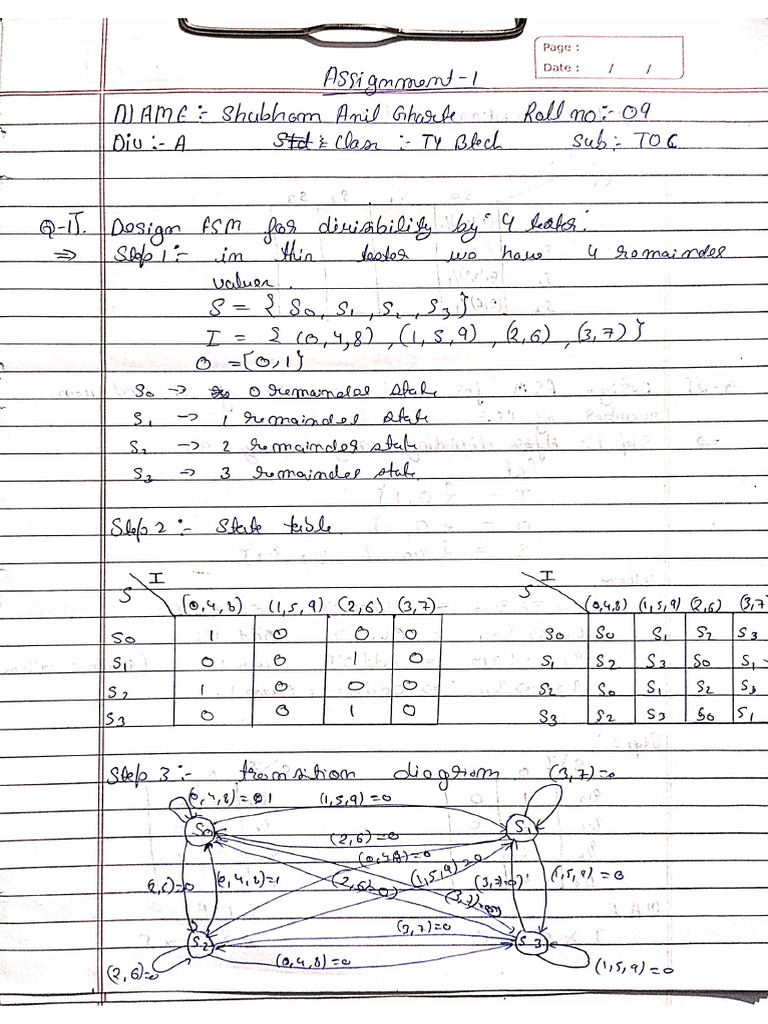 Page :
Date : / /
Assignment-1
NAME:- Shubham Anil Gharte Roll no:- 09
Div :- A Std : Class :- TY Btech Sub :- TOC
Q-1]. Design FSM for divisibility by 4 tester.
⇒ Step 1 :- in this tester we have 4 remainder
values.
S = { S0, S1, S2, S3 }
I = { (0,4,8), (1,5,9), (2,6), (3,7) }
O = {0,1}
S0 -> 0 remainder state
S1 -> 1 remainder state
S2 -> 2 remainder state
S3 -> 3 remainder state.
Step 2 :- State table
S I (0,4,8) (1,5,9) (2,6) (3,7)
S0 1 0 0 0
S1 0 0 1 0
S2 1 0 0 0
S3 0 0 1 0
S I (0,4,8) (1,5,9) (2,6) (3,7
S0 S0 S1 S2 S3
S1 S2 S3 S0 S1
S2 S0 S1 S2 S3
S3 S2 S3 S0 S1
Step 3 :- transition diagram
(3,7)=0
(0,4,8)=01 (1,5,9)=0
S0 S1
(2,6)=0
(0,4,8)=0
(2,6)=0 (0,4,8)=1 (2,6)=0 (1,5,9)=0 (3,7)=0 (1,5,9)=0
(3,7)=0
(3,7)=0
S2 S3
(2,6)=0 (0,4,8)=0 (1,5,9)=0